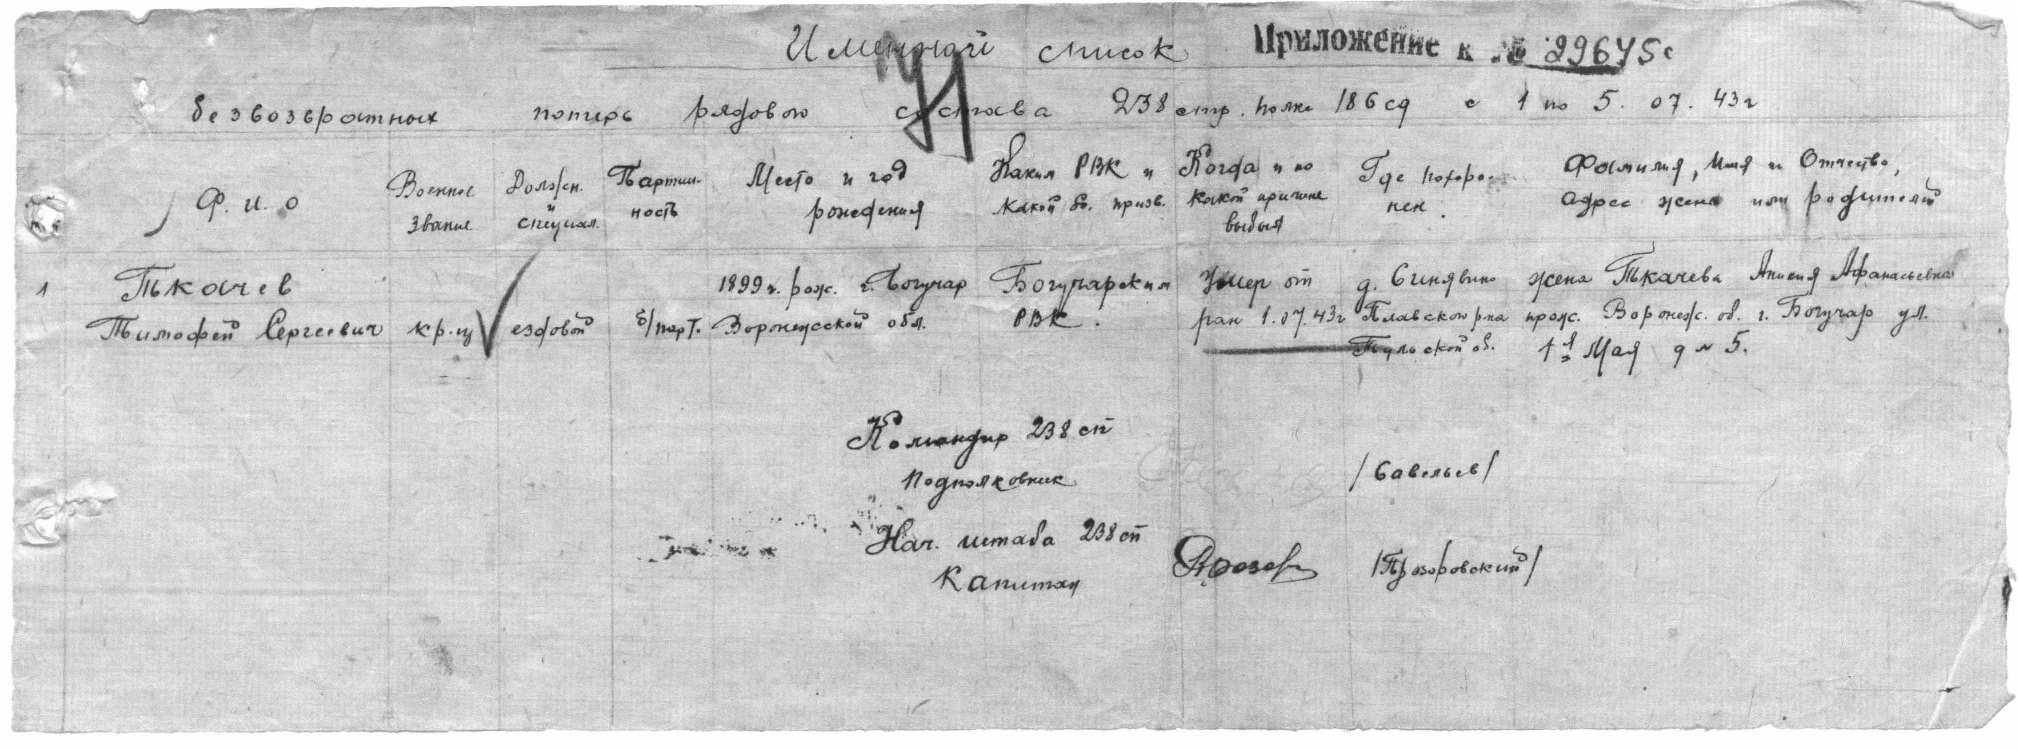 Именной список Приложение к № 29645с
безвозвратных потерь рядового состава 238 стр. полка 186 сд с 1 по 5. 07. 43г
Ф. И. О
Военное
звание
Должн.
и
специал.
Партий-
ность
Место и год
рождения
Каким РВК и
какой об. призв.
Когда и по
какой причине
выбыл
Где похоро-
нен.
Фамилия, Имя и Отчество,
адрес жены или родителей
1 Ткачев 1899 г. рож. г. Богучар Богучарским Умер от д. Синявино жена Ткачева Анисия Афанасьевна
Тимофей Сергеевич кр-ц ездовой б/парт. Воронежской обл. РВК. ран 1.07.43г Плавског р-на прож. Воронеж. об. г. Богучар ул.
Тульской об. 1е Мая д № 5.
Командир 238 сп
Подполковник /Савельев/
Нач. штаба 238 сп
Капитан /Прозоровский/